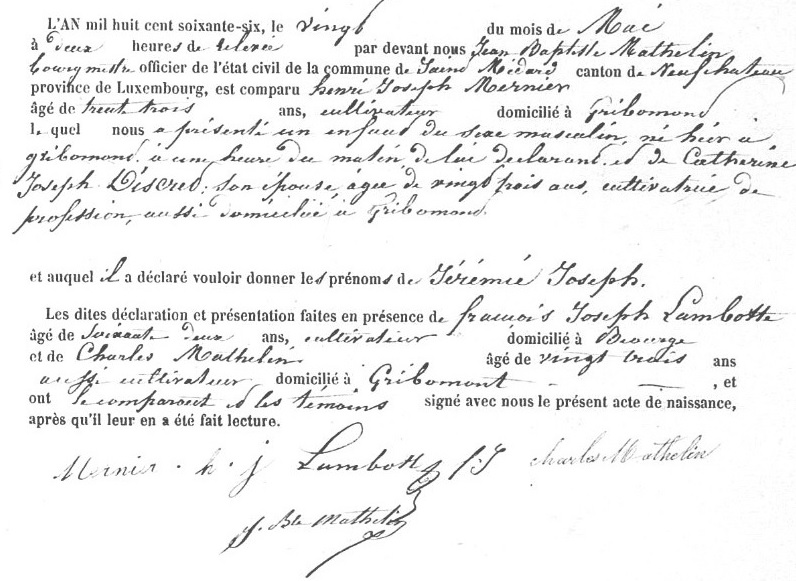 L'AN mil huit cent soixante-six, le vingt du mois de Mai
à deux heures de relevée par devant nous Jean Baptiste Mathelin
bourgmestre officier de l'état civil de la commune de Saint Médard canton de Neufchateau
province de Luxembourg, est comparu henri Joseph Mernier
âgé de trent trois ans, cultivateur domicilié à Gribomond
lequel nous a présenté un enfant du sexe masculin, né hier à
gribomond. à une heure du matin de lui déclarant et de Catherine
Joseph Discret; son épouse âgée de vingt trois ans, cultivatrice de
profession, aussi domiciliée à Gribomond
et auquel il a déclaré vouloir donner les prénoms de Jérémie Joseph.
Les dites déclaration et présentation faites en présence de françois Joseph Lambotte
âgé de soixante deux ans, cultivateur domicilié à
et de Charles Mathelin âgé de vingt trois ans
aussi cultivateur domicilié à Gribomont - — , et
ont le comparant et les témoins signé avec nous le présent acte de naissance,
après qu'il leur en a été fait lecture.
Mernier . h . j Lambotte f. J Charles Mathelin
J. Bte Mathelin